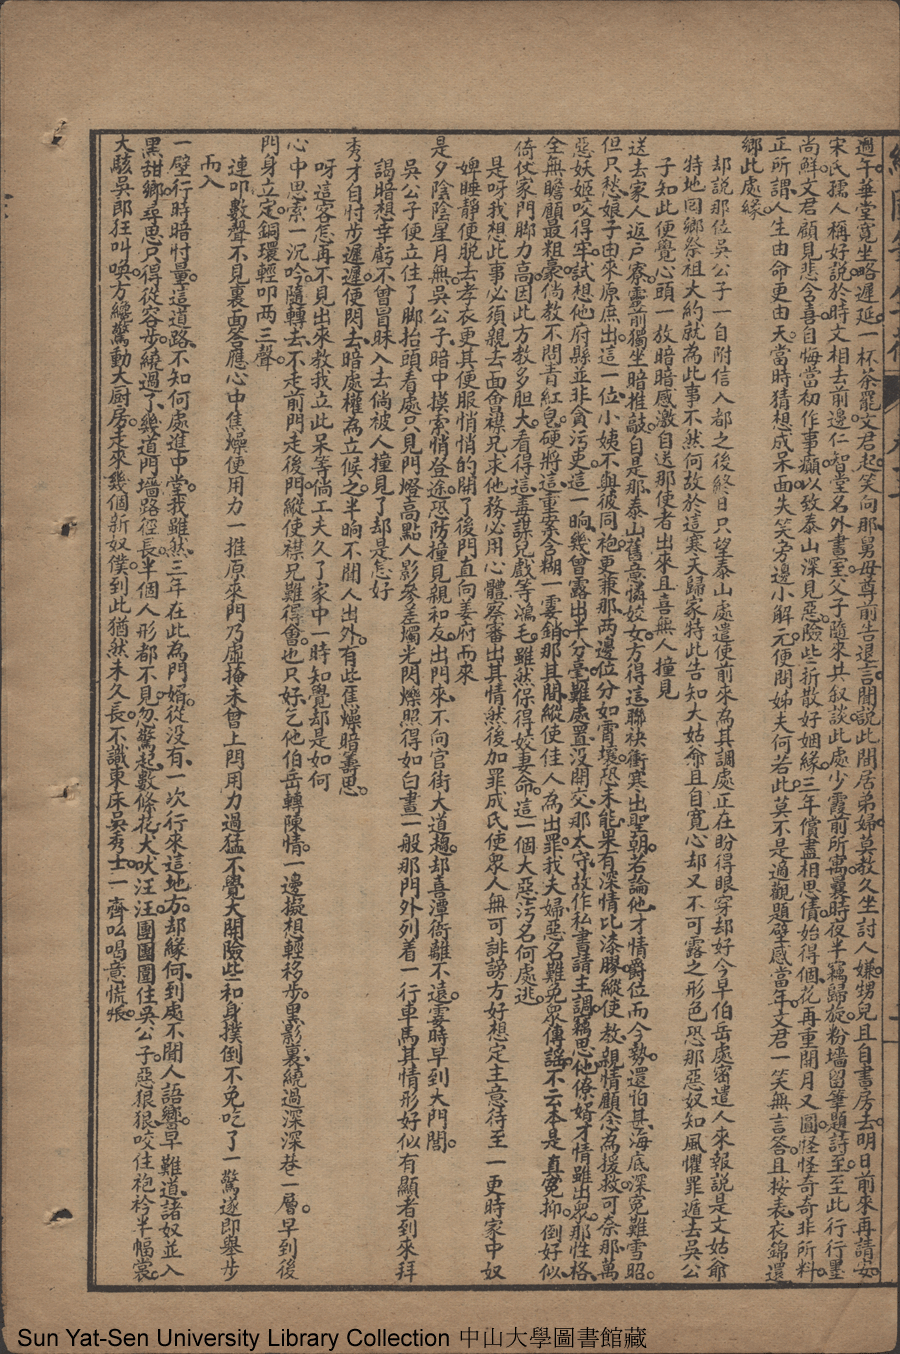 過午華堂寬坐略遲延一杯茶罷文君起笑向那舅母尊前告退言聞說此間居弟婦莫教久坐討人嫌甥兒且自書房去明日前來再請安
宋氏孺人稱好說於時文相去前邊仁智堂名外書室父子隨來共叙談此處少霞前所寓曩時夜半竊歸旋粉墻留筆題詩至至此行行墨
尚鮮文君顧見悲含喜自悔當初作事癲以致泰山深見惡險些折散好姻緣三年償盡相思債始得個花再重開月又圓怪怪奇奇非所料
正所謂人生由命更由天當時猜想成呆面失笑旁邊小解元便問姊夫何若此莫不是適觀題壁感當年文君一笑無言答且按表衣錦還
鄉此處緣
却說那位吳公子一自附信入都之後終日只望泰山處遣使前來為其調處正在盼得眼穿却好今早伯岳處密遣人來報說是文姑爺
特地回鄉祭祖大約就為此事不然何故於這寒天歸家特此告知大姑爺且自寬心却又不可露之形色恐那惡奴知風懼罪遁去吳公
子知此便覺心頭一放暗暗感激自送那使者出來且喜無人撞見
送去家人返戶寮靈前獨坐一暗推敲自是那泰山舊意憐姣女方得這聯袂衝寒出聖朝若論他才情爵位而今勢還怕甚海底深冤難雪昭
但只愁娘子由來原庶出這一位小姨不與彼同袍更兼那兩邊位分如霄壤恐未能果有深情比漆膠縱使教親情顧念為援救可奈那萬
惡妖姬咬得牢試想他府縣並非貪污吏這一晌幾曾露出半分毫難處置沒開交那太守故作私書請主調竊思他僚婿才情雖出眾那性格
全無瞻顧最粗豪倘教不問青紅皂硬將這重案含糊一霎銷那其間縱使佳人為出罪我夫婦惡名難免眾傳謠不云本是真冤抑倒好似
倚仗家門脚力高因此方教多胆大看得這毒謀兒戲等鴻毛雖然保得姣妻命這一個大惡污名何處逃
是呀我想此事必須親去面會襟兄求他務必用心體察審出其情然後加罪成氏使眾人無可誹謗方好想定主意待至一更時家中奴
婢睡靜便脱去孝衣更其便服悄悄的開了後門直向姜府而來
是夕陰陰星月無吳公子暗中摸索悄登途恐防撞見親和友出門來不向官街大道趨却喜潭衙離不遠霎時早到大門閭
吳公子便立住了脚抬頭看處只見門燈高點人影參差燭光閃爍照得如白晝一般那門外列着一行車馬其情形好似有顯者到來拜
謁暗想幸虧不曾冒昧入去倘被人撞見了却是怎好
秀才自忖步遲遲便閃去暗處權為立候之半晌不聞人出外有些焦燥暗籌思
呀這客怎再不見出來教我立此呆等倘工夫久了家中一時知覺却是如何
心中思索一沉吟隨轉去不走前門走後門縱使襟兄難得會也只好乞他伯岳轉陳情一邊擬想輕移步黑影裏繞過深深巷一層早到後
門身立定銅環輕叩兩三聲
連叩數聲不見裏面答應心中焦燥便用力一推原來門乃虛掩未曾上閂用力過猛不覺大開險些和身撲倒不免吃了一驚遂即舉步
而入
一壁行時暗忖量這道路不知何處進中堂我雖然三年在此為門婿從沒有一次行來這地方却緣何到處不聞人語響早難道諸奴並入
黑甜鄉尋思只得從容步繞過了幾道門墻路徑長半個人形都不見忽驚起數條花犬吠汪汪團團圍住吳公子惡狠狠咬住袍衿半幅裳
大駭吳郎狂叫喚方纔驚動大厨房走來幾個新奴僕到此猶然未久長不識東床吳秀士一齊吆喝意慌張
Sun Yat-Sen University Library Collection 中山大學圖書館藏